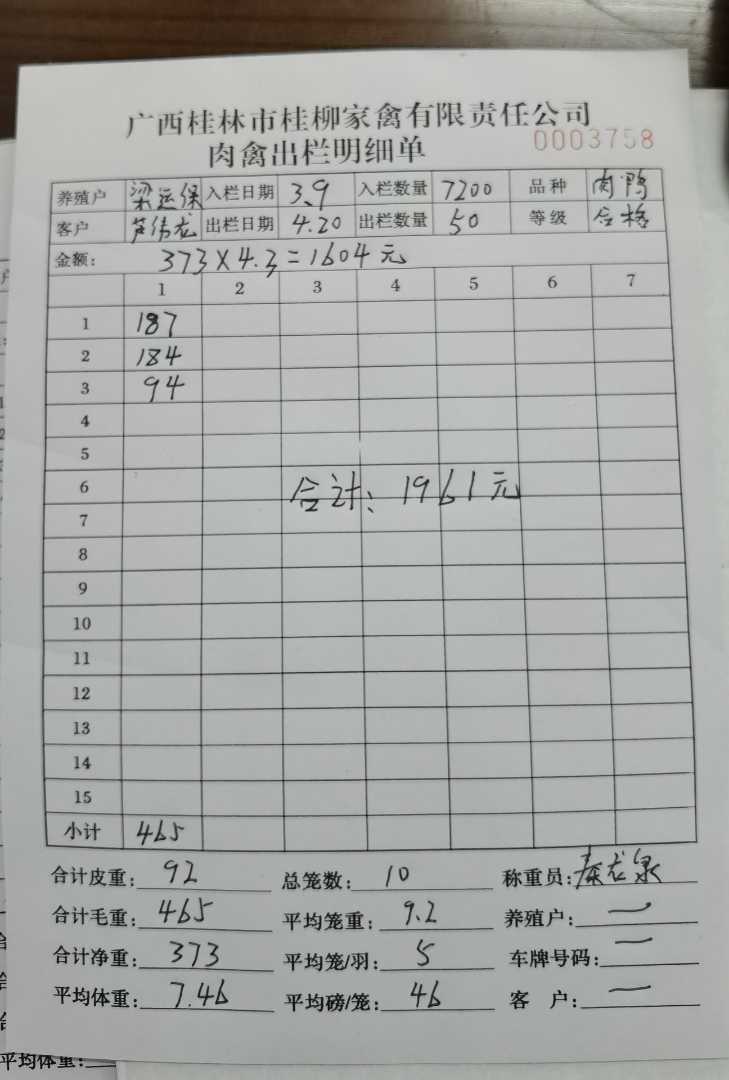 广西桂林市桂柳家禽有限责任公司
肉禽出栏明细单 0003758
养殖户 梁运保 入栏日期 3.9 入栏数量 7200 品种 肉鸭
客户 芦伟龙 出栏日期 4.20 出栏数量 50 等级 合格
金额: 373×4.3=1604元
1 2 3 4 5 6 7
1 187
2 184
3 94
4
5
6 合计: 1961元
7
8
9
10
11
12
13
14
15
小计 465
合计皮重: 92 总笼数: 10 称重员: 秦龙泉
合计毛重: 465 平均笼重: 9.2 养殖户: 一
合计净重: 373 平均笼/羽: 5 车牌号码: 一
平均体重: 7.46 平均磅/笼: 46 客 户: 一
平均体重: